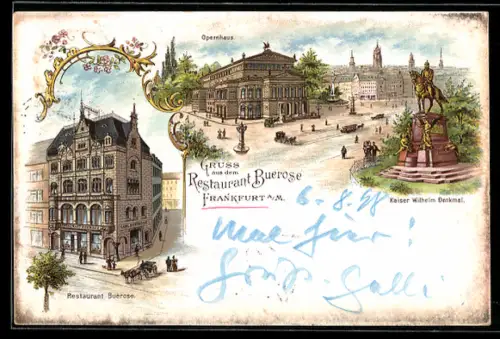 Opernhaus.
GRUSS
aus dem
Restaurant Buerose
FRANKFURT A/M.
Kaiser Wilhelm Denkmal.
6.8.98
Mal hier!
Gruß
Restaurant Buerose.